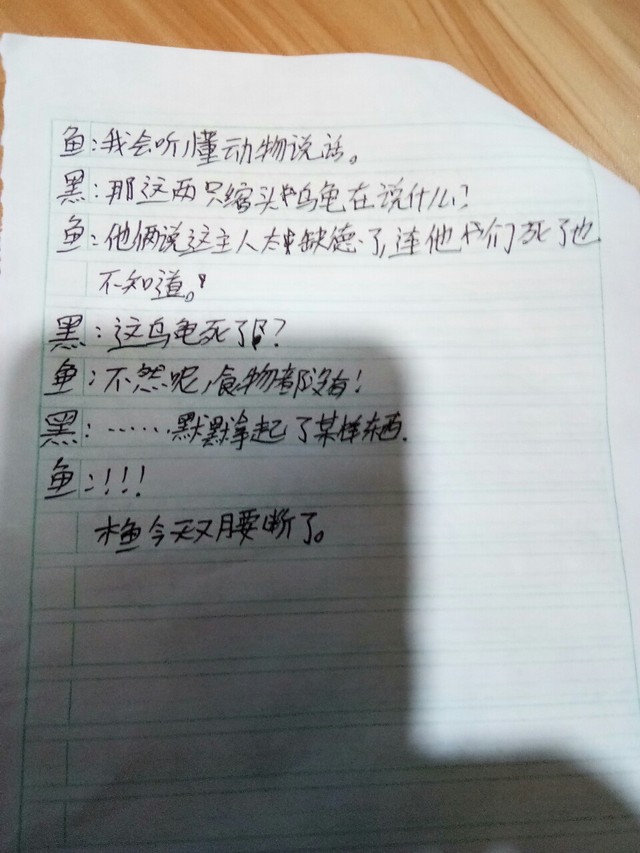 鱼:我会听懂动物说话。
黑:那这两只缩头乌龟在说什么?
鱼:他俩说这主人太缺德了,连他们死了也
不知道。
黑:这乌龟死了?
鱼:不然呢,食物都没有!
黑:……默默拿起了某样东西.
鱼:!!!
木鱼今天又腰断了。